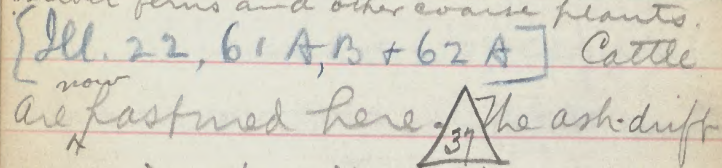 ferns and other coarse plants.
[Ill. 22, 61 A, B + 62 A] Cattle
now
are pastured here. 37 The ash-drift